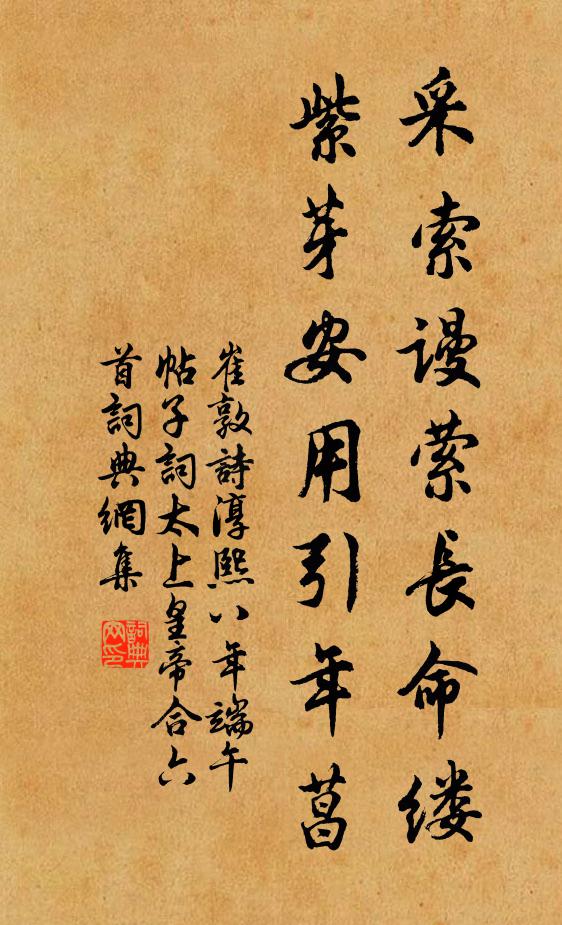 采索謾萦長命缕
紫芽安用引年菖
崔敦詩淳熙八年端午
帖子詞太上皇帝合六
首詞典網集
詞典网印